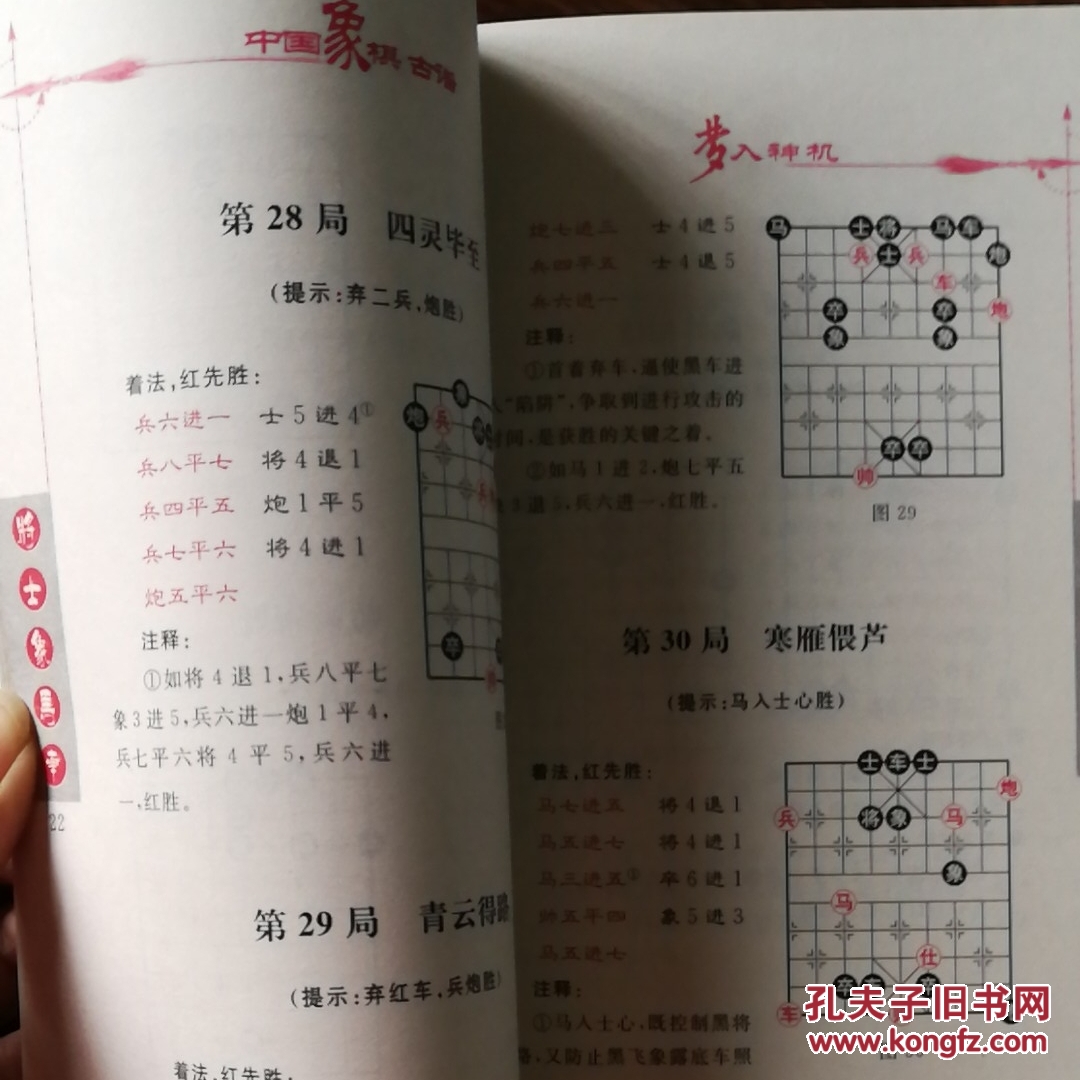 中国象棋古谱
第28局 四灵毕至
(提示:弃二兵,炮胜)
着法,红先胜:
兵六进一 士5进4①
兵八平七 将4退1
兵四平五 炮1平5
兵七平六 将4进1
炮五平六
注释:
①如将4退1,兵八平七
象3进5,兵六进一炮1平4,
兵七平六将4平5,兵六进
一,红胜。
象
炮
兵
卒
将
士
象
馬
車
22
第29局 青云得路
(提示:弃红车,兵炮胜)
着法,红先胜:
梦入神机
炮七进三 士4进5
兵四平五 士4退5
兵六进一
注释:
①首着弃车,逼使黑车进
入“陷阱”,争取到进行攻击的
时间,是获胜的关键之着。
②如马1进2,炮七平五
士3退5,兵六进一,红胜。
马 士 将 马 车
兵 士 兵 炮
车
卒 卒 炮
象 象
卒 卒
帅
图29
第30局 寒雁偎芦
(提示:马入士心胜)
着法,红先胜:
马七进五 将4退1
马五进七 将4进1
马三进五① 卒6进1
帅五平四 象5进3
马五进七
注释:
①马入士心,既控制黑将
路,又防止黑飞象露底车照
士 车 士
炮
兵 将 象 马
象
马
仕
卒 卒
车
孔夫子旧书网
www.kongfz.com